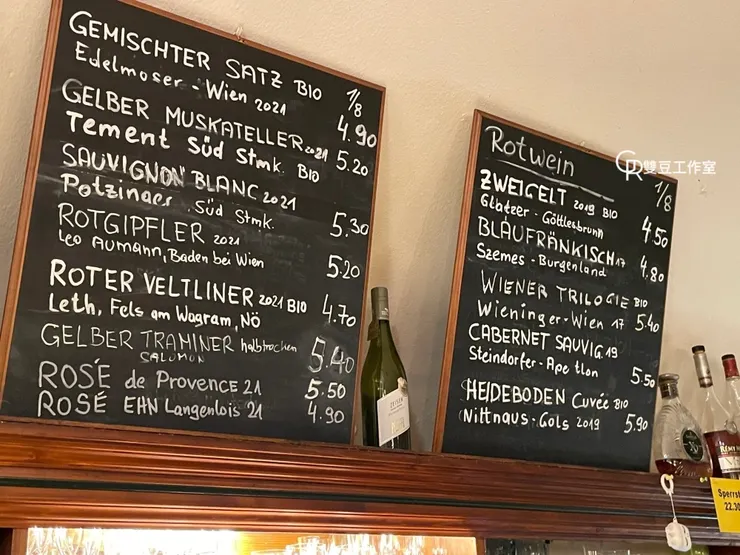 GEMISCHTER SATZ BIO 1/8
Edelmoser - Wien 2021 4.90
GELBER MUSKATELLER 2021
Tement Süd Stmk. BIO 5.20
SAUVIGNON BLANC 2021
Potzinger. Süd Stmk. 5.30
ROTGIPFLER 2021
Leo Aumann, Baden bei Wien 5.20
ROTER VELTLINER 2021 BIO
Leth, Fels am Wagram, NÖ 4.70
GELBER TRAMINER halbtrocken
SALOMON 5.40
ROSÉ de Provence 21 5.50
ROSÉ EHN Langenlois 21 4.90
Rotwein 1/8
ZWEIGELT 2019 BIO
Glatzer - Göttlesbrunn 4.50
BLAUFRÄNKISCH 17
Szemes - Burgenland 4.80
WIENER TRILOGIE BIO
Wieninger - Wien 17 5.40
CABERNET SAUVIG 19
Steindorfer - Apetlon 5.50
HEIDEBODEN Cuvée BIO
Nittnaus - Gols 2019 5.90
雙豆工作室
RÉMY
Sperrst
22.30